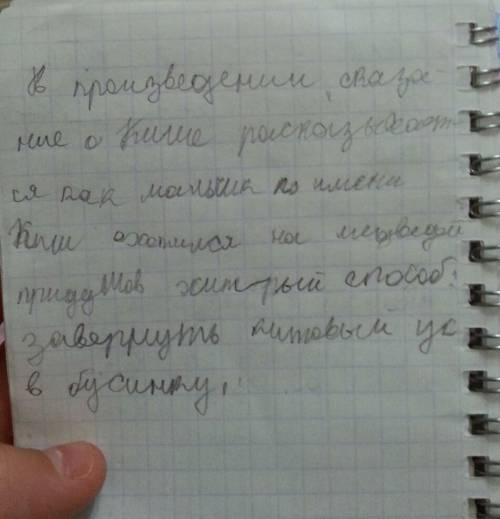 В произведении, сказа-
ние о Кише расказывает-
ся как мальчик по имени
Киш охотился на медведей
придумов хитрый способ:
завернуть китовый ус
в бусинку,